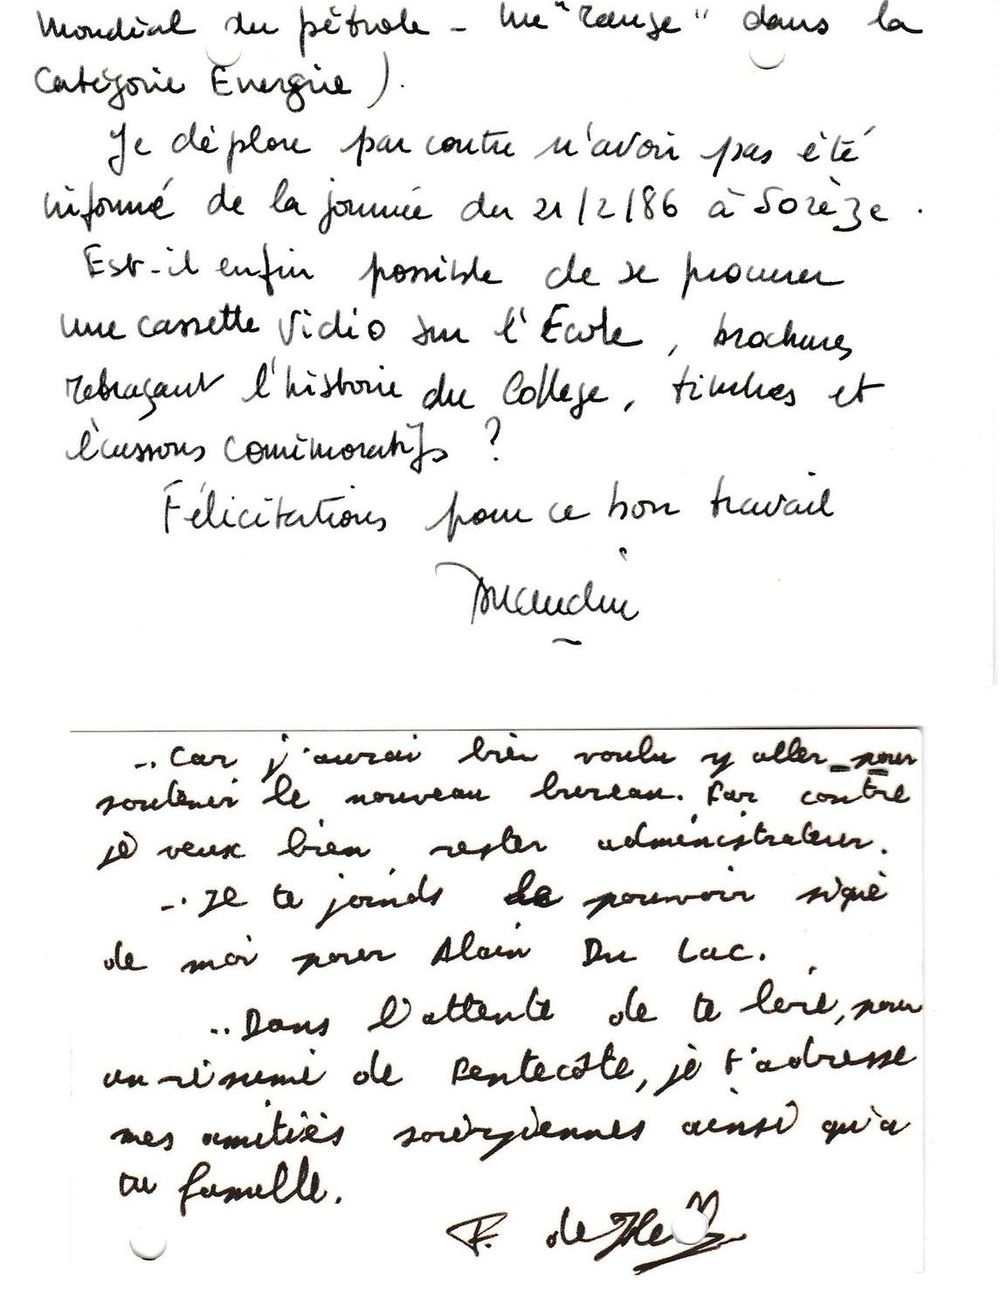 Mondial du pétrole - me "range" dans la
Catégorie Energie).
Je déplore par contre n'avoir pas été
informé de la journée du 21/2/86 à Sorèze.
Est-il enfin possible de se procurer
une cassette Vidéo sur l'Ecole, brochures
retraçant l'histoire du College, timbres et
écussons comémoratifs ?
Félicitations pour ce bon travail
.. Car j'aurai bien voulu y aller pour
soutenir le nouveau bureau. Par contre
je veux bien rester administrateur.
-. Je te joinds le pouvoir signé
de moi pour Alain Du Lac.
.. Dans l'attente de te lire, pour
un résumé de Pentecôte, je t'adresse
mes amitiés sorèziennes ainsi qu'à
ta famille.
F. de